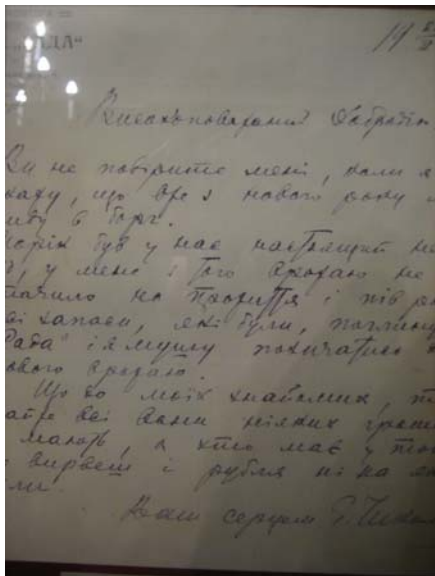 „РАДА“
19
Високоповажаний Добродію
Ви не повірите мені, коли я
кажу, що вже з нового року
живу в борг.
Торік був у нас настоящий не
, у мене з того врожаю не
стачило на прожиття і пів ро
всі запаси, які були, поглину
"Рада" і я мушу позичатись
нового врожаю.
Що до моїх знайомих, т
майже всі вони ніяких грош
мають, а хто має у то
вирвеш і рубля ні на як
Ваш серцем Є. Чикал